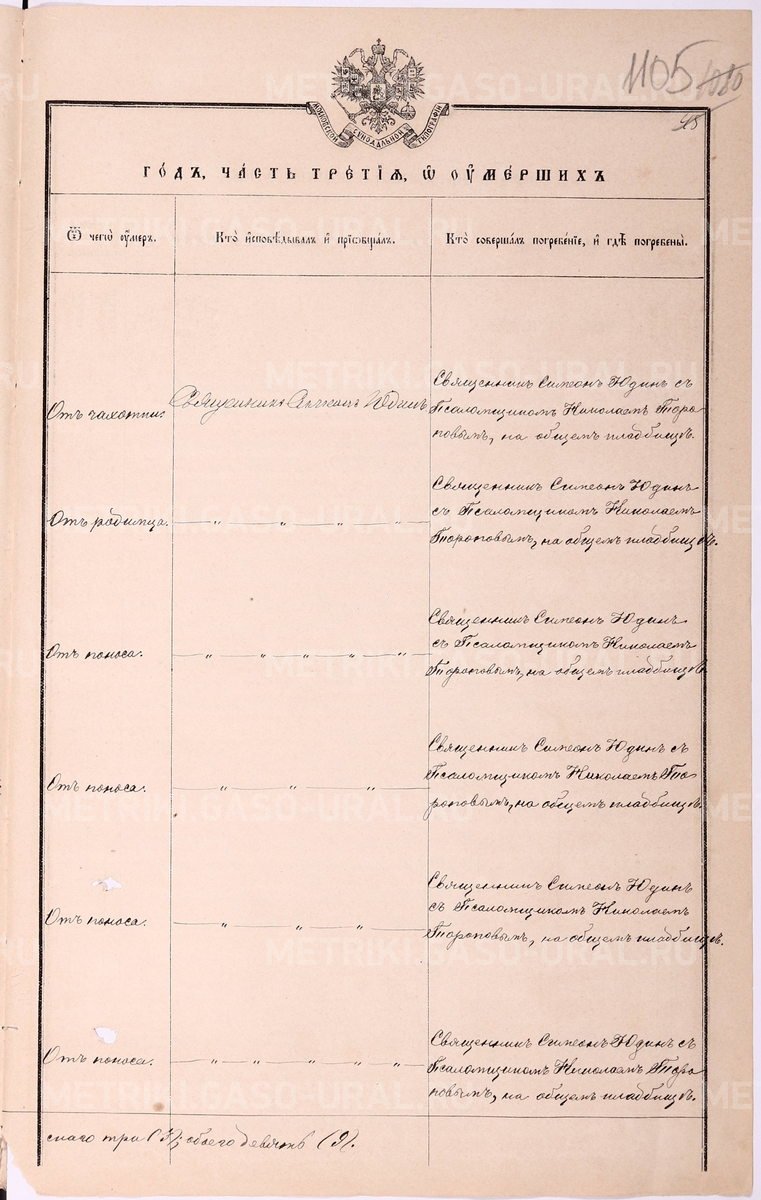 1105 1080
48
МОСКОВСКОЙ СѴНОДАЛЬНОЙ ТИПОГРАФІИ
го́дъ, ча́сть тре́тїѧ, ѡ҆ ᲂу҆ме́ршихъ
Ѿ чегѡ̀ ᲂу҆́меръ.
Кто̀ и҆сповѣ́дывалъ и҆ прїѡбща́лъ.
Кто̀ соверша́лъ погребе́нїе, и҆ гдѣ̀ погребены̀.
Отъ чахотки.
Священникъ Симеонъ Юдинъ
Священникъ Симеонъ Юдинъ съ
Псаломщикомъ Николаемъ Торо
повымъ, на общемъ кладбищѣ.
Отъ родимца.
— „ — „ — „ — „
Священникъ Симеонъ Юдинъ
съ Псаломщикомъ Николаемъ
Тороповымъ, на общемъ кладбищѣ.
Отъ поноса.
— „ — „ — „ — „ — „
Священникъ Симеонъ Юдинъ
съ Псаломщикомъ Николаемъ
Тороповымъ, на общемъ кладбищѣ.
Отъ поноса.
— „ — „ — „
Священникъ Симеонъ Юдинъ съ
Псаломщикомъ Николаемъ То
роповымъ, на общемъ кладбищѣ.
Отъ поноса.
— „ — „ — „
Священникъ Симеонъ Юдинъ
съ Псаломщикомъ Николаемъ
Тороповымъ, на общемъ кладбищѣ.
Отъ поноса.
— „ — „ — „ — „ — „
Священникъ Симеонъ Юдинъ съ
Псаломщикомъ Николаемъ Торо
повымъ, на общемъ кладбищѣ.
скаго три (3), обоего девять (9).
METRIKI.GASO-URAL.RU
METRIKI.GASO-URAL.RU
METRIKI.GASO-URAL.RU
METRIKI.GASO-URAL.RU
METRIKI.GASO-URAL.RU
METRIKI.GASO-URAL.RU
METRIKI.GASO-URAL.RU
METRIKI.GASO-URAL.RU